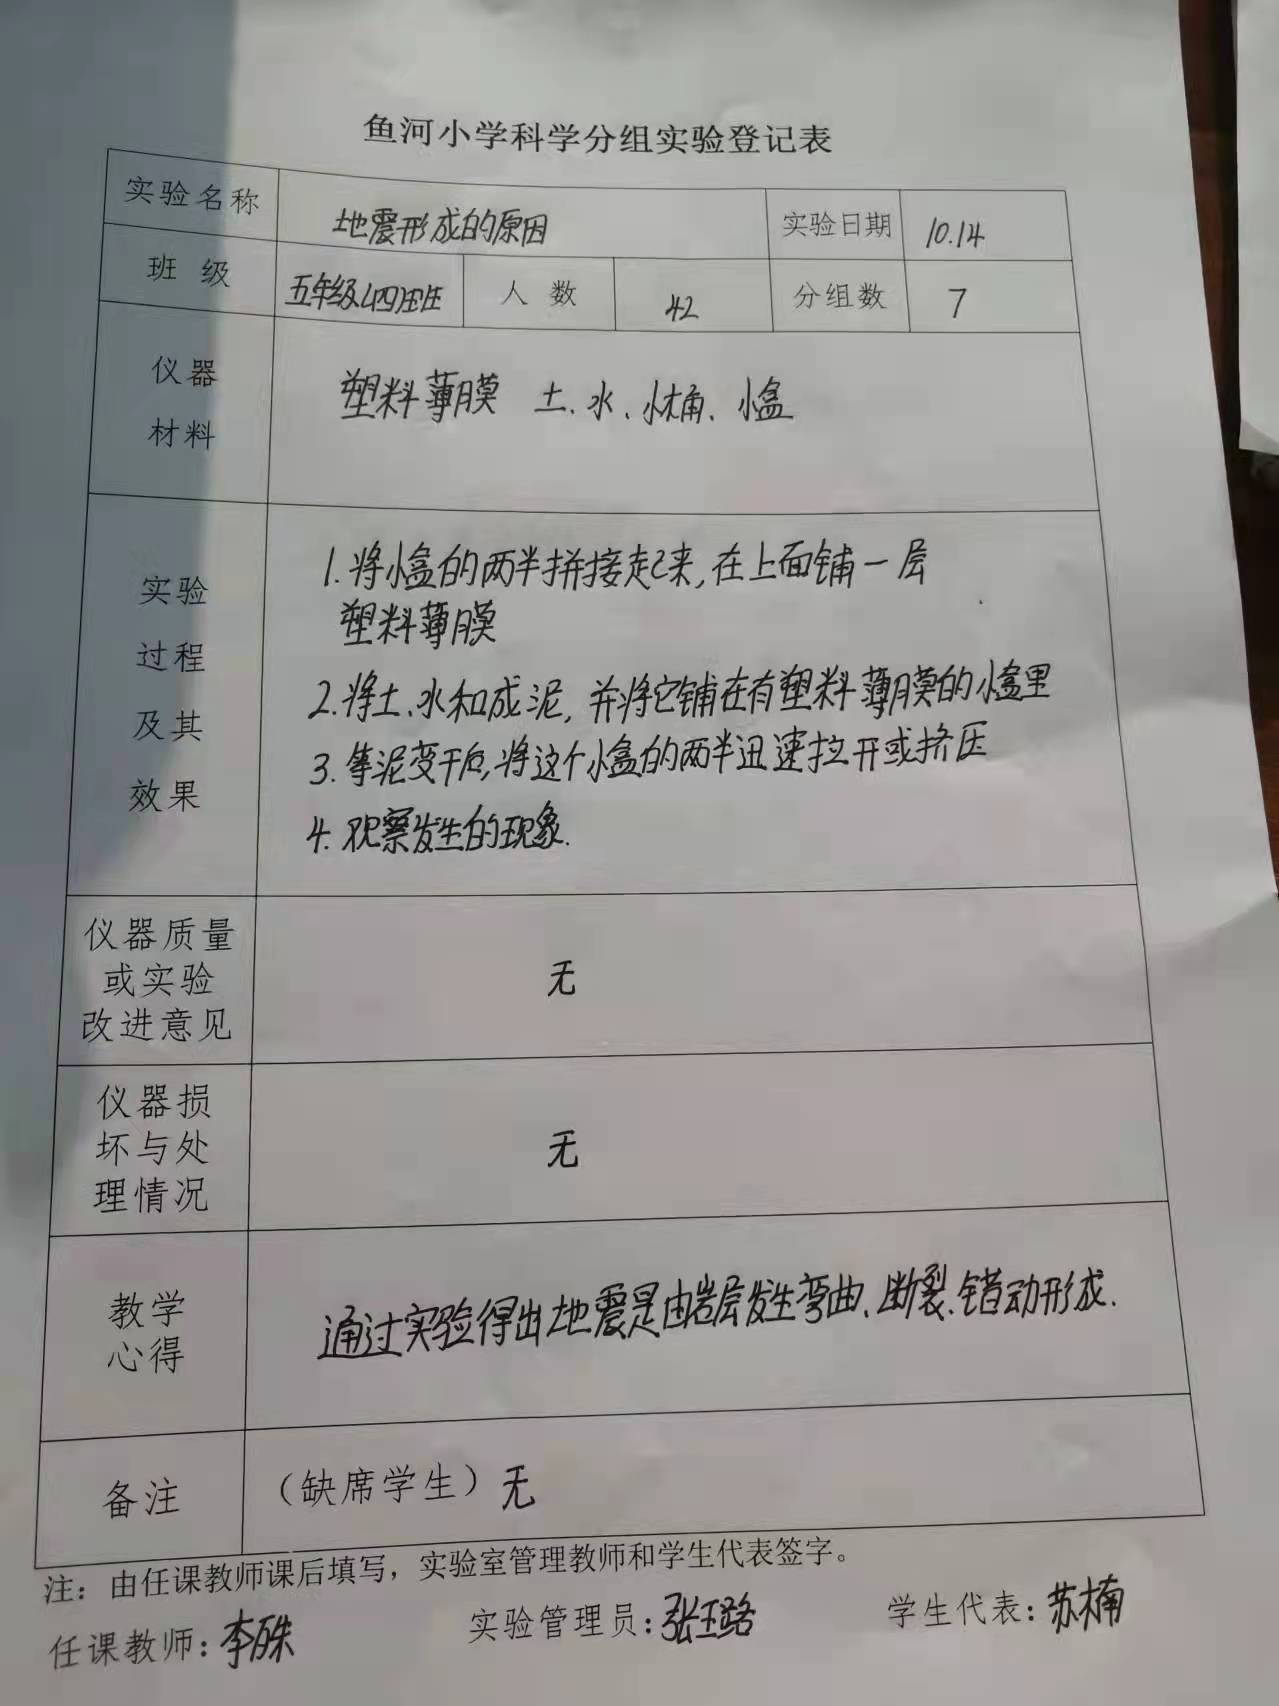 鱼河小学科学分组实验登记表
实验名称 地震形成的原因 实验日期 10.14
班 级 五年级(四)班 人 数 42 分组数 7
仪器
材料
塑料薄膜 土、水、水桶、小盒
实验
过程
及其
效果
1.将小盒的两半拼接起来,在上面铺一层
塑料薄膜
2.将土、水和成泥,并将它铺在有塑料薄膜的小盒里
3.等泥变干后,将这个小盒的两半迅速拉开或挤压
4.观察发生的现象.
仪器质量
或实验
改进意见
无
仪器损
坏与处
理情况
无
教学
心得
通过实验得出地震是由岩层发生弯曲、断裂、错动形成.
备注 (缺席学生) 无
注：由任课教师课后填写，实验室管理教师和学生代表签字。
任课教师: 李 实验管理员: 张玉路 学生代表: 苏楠